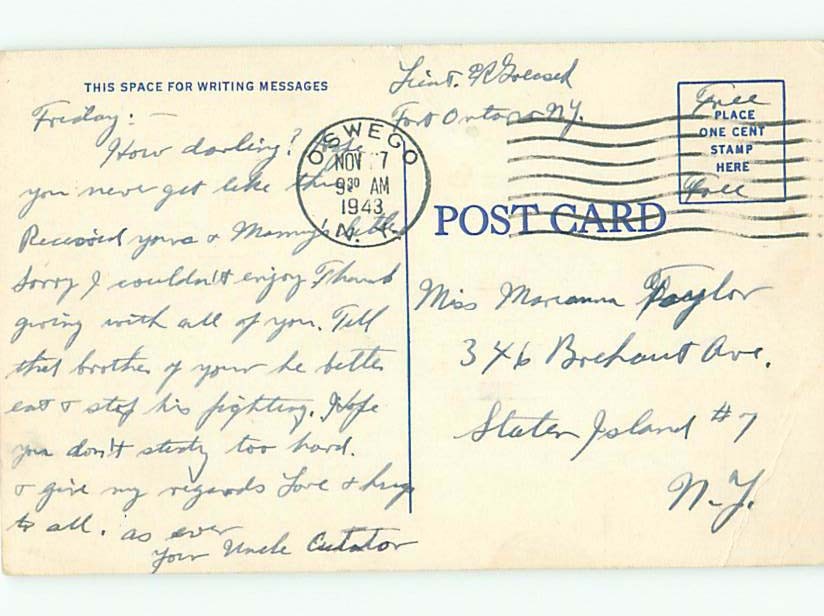 THIS SPACE FOR WRITING MESSAGES
Friday: —
How darling? Hope
you never get like this
Received yours & Mommy's letter
Sorry I couldn't enjoy Thanks
giving with all of you. Tell
that brother of your he better
eat & stop his fighting. Hope
you don't study too hard.
& give my regards Love & hugs
to all. as ever
Your Uncle
Lieut.
Fort Ontario N.Y.
OSWEGO
NOV 7
930 AM
1943
N. Y.
Free
PLACE
ONE CENT
STAMP
HERE
Free
POST CARD
Miss Marianna Taylor
346 Ave.
Staten Island #7
N.Y.